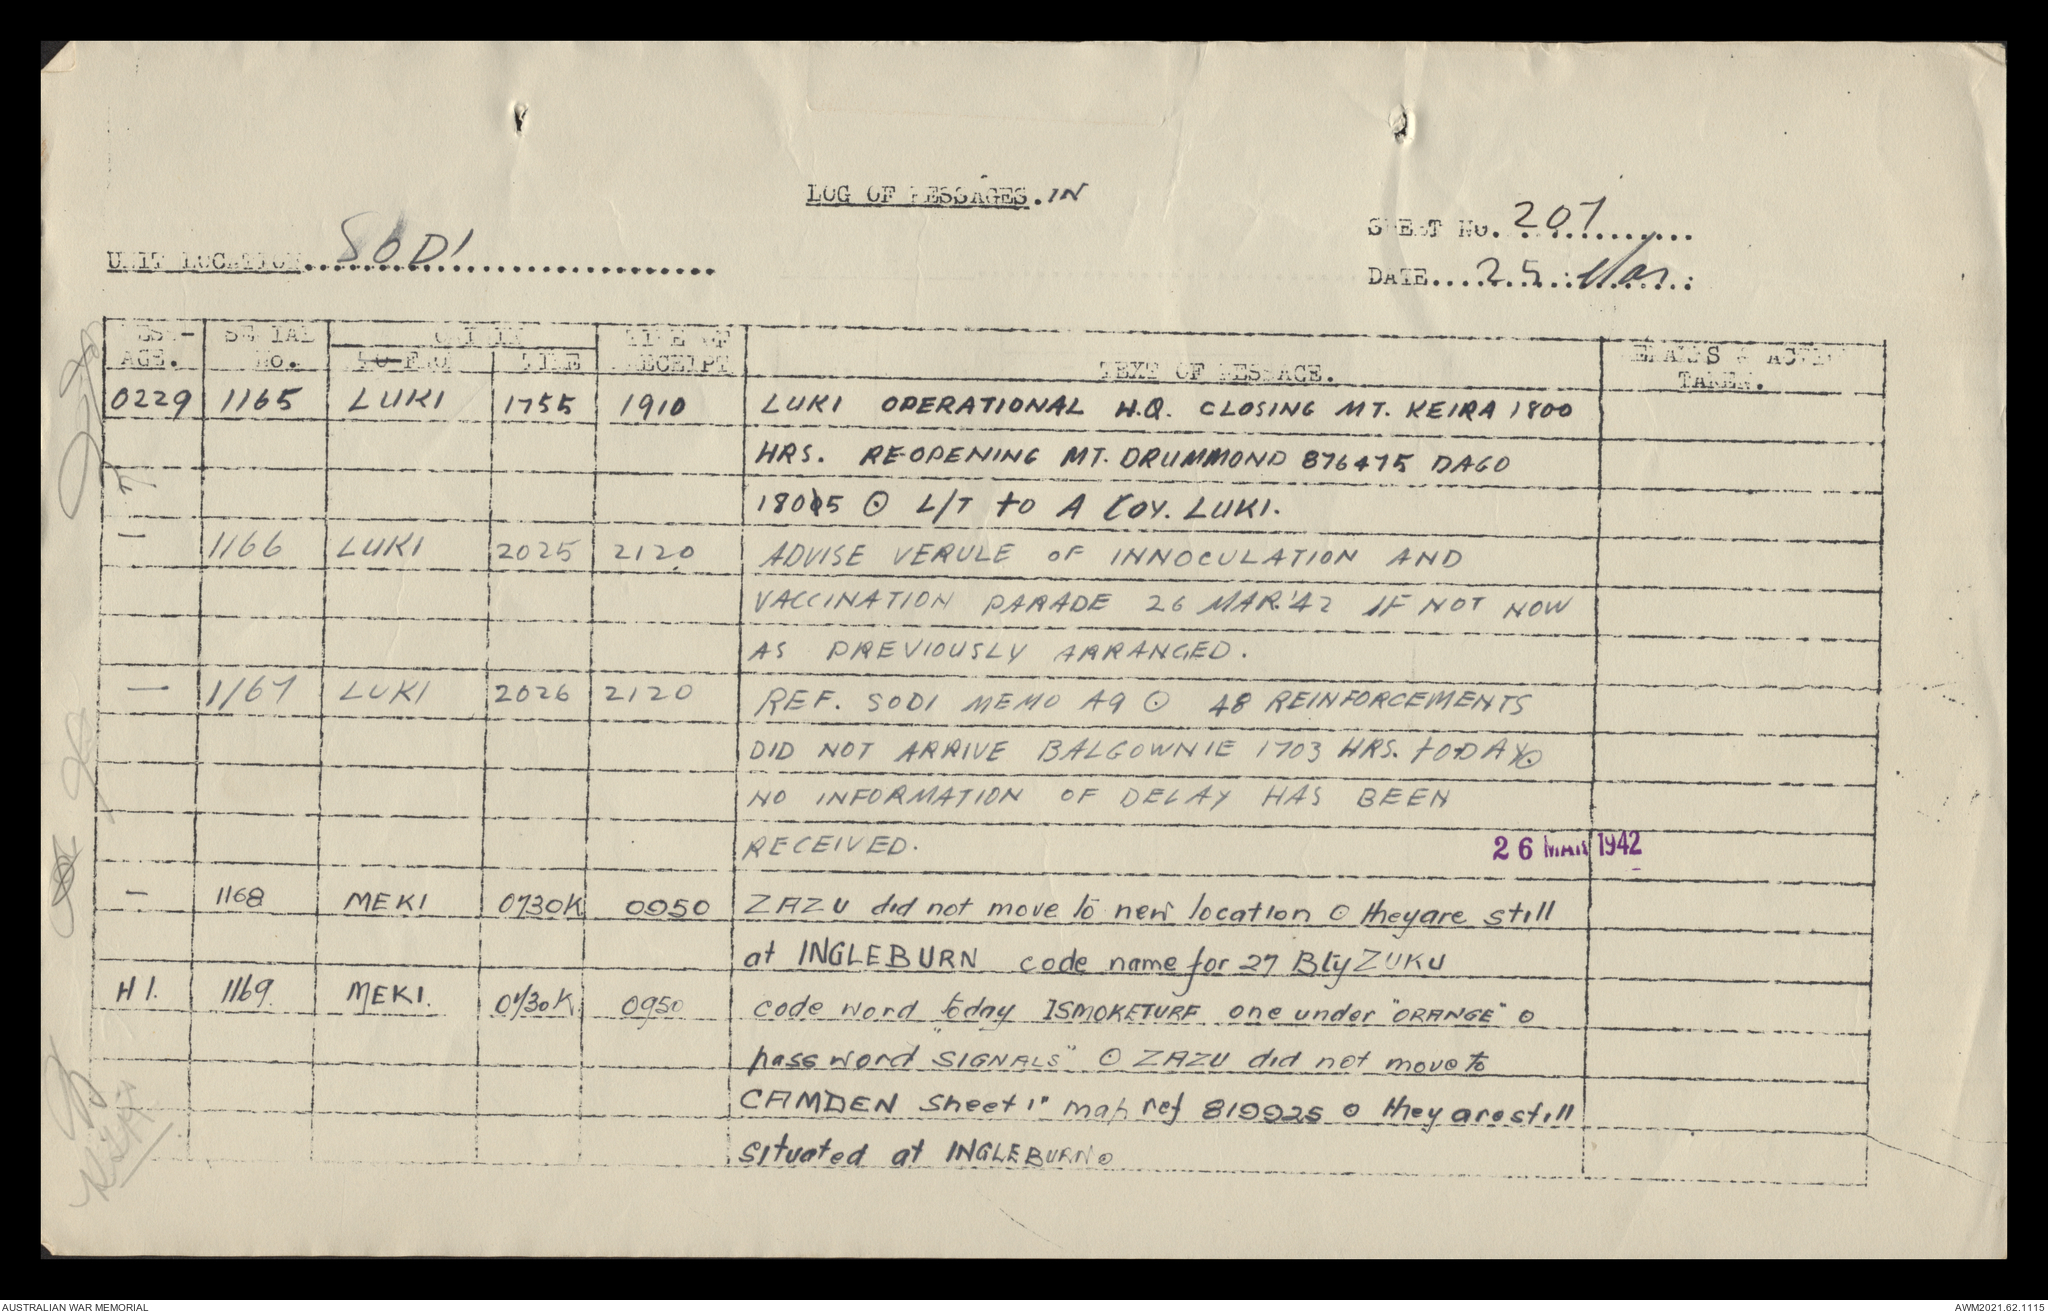 LOG OF MESSAGES. IN
UNIT LOCATION SODI
SHEET NO. 207
DATE 25 Mar
MESS-AGE. SERIAL No. ORIGIN TO FROM TIME TIME OF RECEIPT TEXT OF MESSAGE. REMARKS & ACTION TAKEN.
0229 1165 LUKI 1755 1910 LUKI OPERATIONAL H.Q. CLOSING MT. KEIRA 1800
HRS. RE-OPENING MT. DRUMMOND 876475 DAGO
1805 ⊙ L/T to A Coy. LUKI.
— 1166 LUKI 2025 2120 ADVISE VERULE OF INNOCULATION AND
VACCINATION PARADE 26 MAR.'42 IF NOT NOW
AS PREVIOUSLY ARRANGED.
— 1167 LUKI 2026 2120 REF. SODI MEMO A9 ⊙ 48 REINFORCEMENTS
DID NOT ARRIVE BALGOWNIE 1703 HRS. TODAY ⊙
NO INFORMATION OF DELAY HAS BEEN
RECEIVED.
26 MAR 1942
— 1168 MEKI 0730K 0950 ZAZU did not move to new location ⊙ they are still
at INGLEBURN code name for 27 Bty ZUKU
H1. 1169. MEKI. 0730K 0950 code word today ISMOKETURF one under "ORANGE" ⊙
pass word "SIGNALS" ⊙ ZAZU did not move to
CAMDEN Sheet 1" map ref 819925 ⊙ they are still
situated at INGLEBURN ⊙
AUSTRALIAN WAR MEMORIAL
AWM2021.62.1115